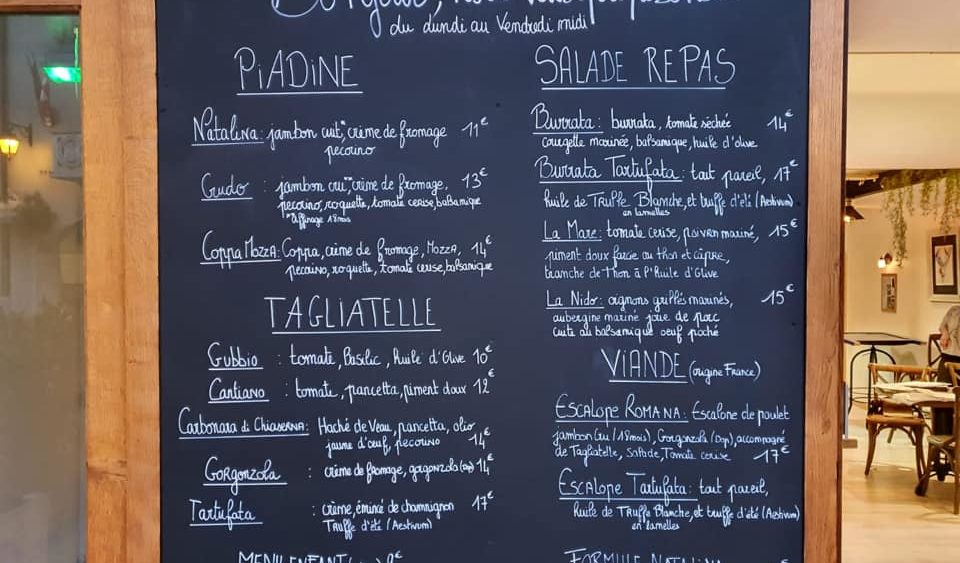 du Lundi au Vendredi midi
PiADiNE
Natalina: jambon cuit, crème de fromage 11€
pecorino
Gudo : jambon cru*, crème de fromage, 13€
pecorino, roquette, tomate cerise, balsamique
*affinage 18 mois
Coppa Mozza: Coppa, crème de fromage, Mozza, 14€
pecorino, roquette, tomate cerise, balsamique
TAGLiATELLE
Gubbio : tomate, Basilic, Huile d'Olive 10€
Cantiano : tomate, pancetta, piment doux 12€
Carbonara di Chiaserna: Haché de Veau, pancetta, olio
jaune d'œuf, pecorino 14€
Gorgonzola : crème de fromage, gorgonzola (Dop) 14€
Tartufata : crème, émincé de champignon 17€
Truffe d'été (Aestivum)
MENU ENFANT
SALADE REPAS
Burrata: burrata, tomate séchée 14€
courgette marinée, balsamique, huile d'olive
Burrata Tartufata: tout pareil, 17€
huile de Truffe Blanche, et truffe d'été (Aestivum)
en lamelles
La Mare: tomate cerise, poivron mariné, 15€
piment doux farcie au thon et câpre,
tranche de thon à l'Huile d'Olive
La Nido: oignons grillés marinés, 15€
aubergine mariné joue de porc
cuite au balsamique oeuf poché
ViANDE (origine France)
Escalope Romana: Escalope de poulet
jambon Cru (18mois), Gorgonzola (Dop), accompagné
de Tagliatelle, Salade, Tomate cerise 17€
Escalope Tartufata: tout pareil,
Huile de Truffe Blanche, et truffe d'été (Aestivum)
en lamelles
FORMULE NATALINA